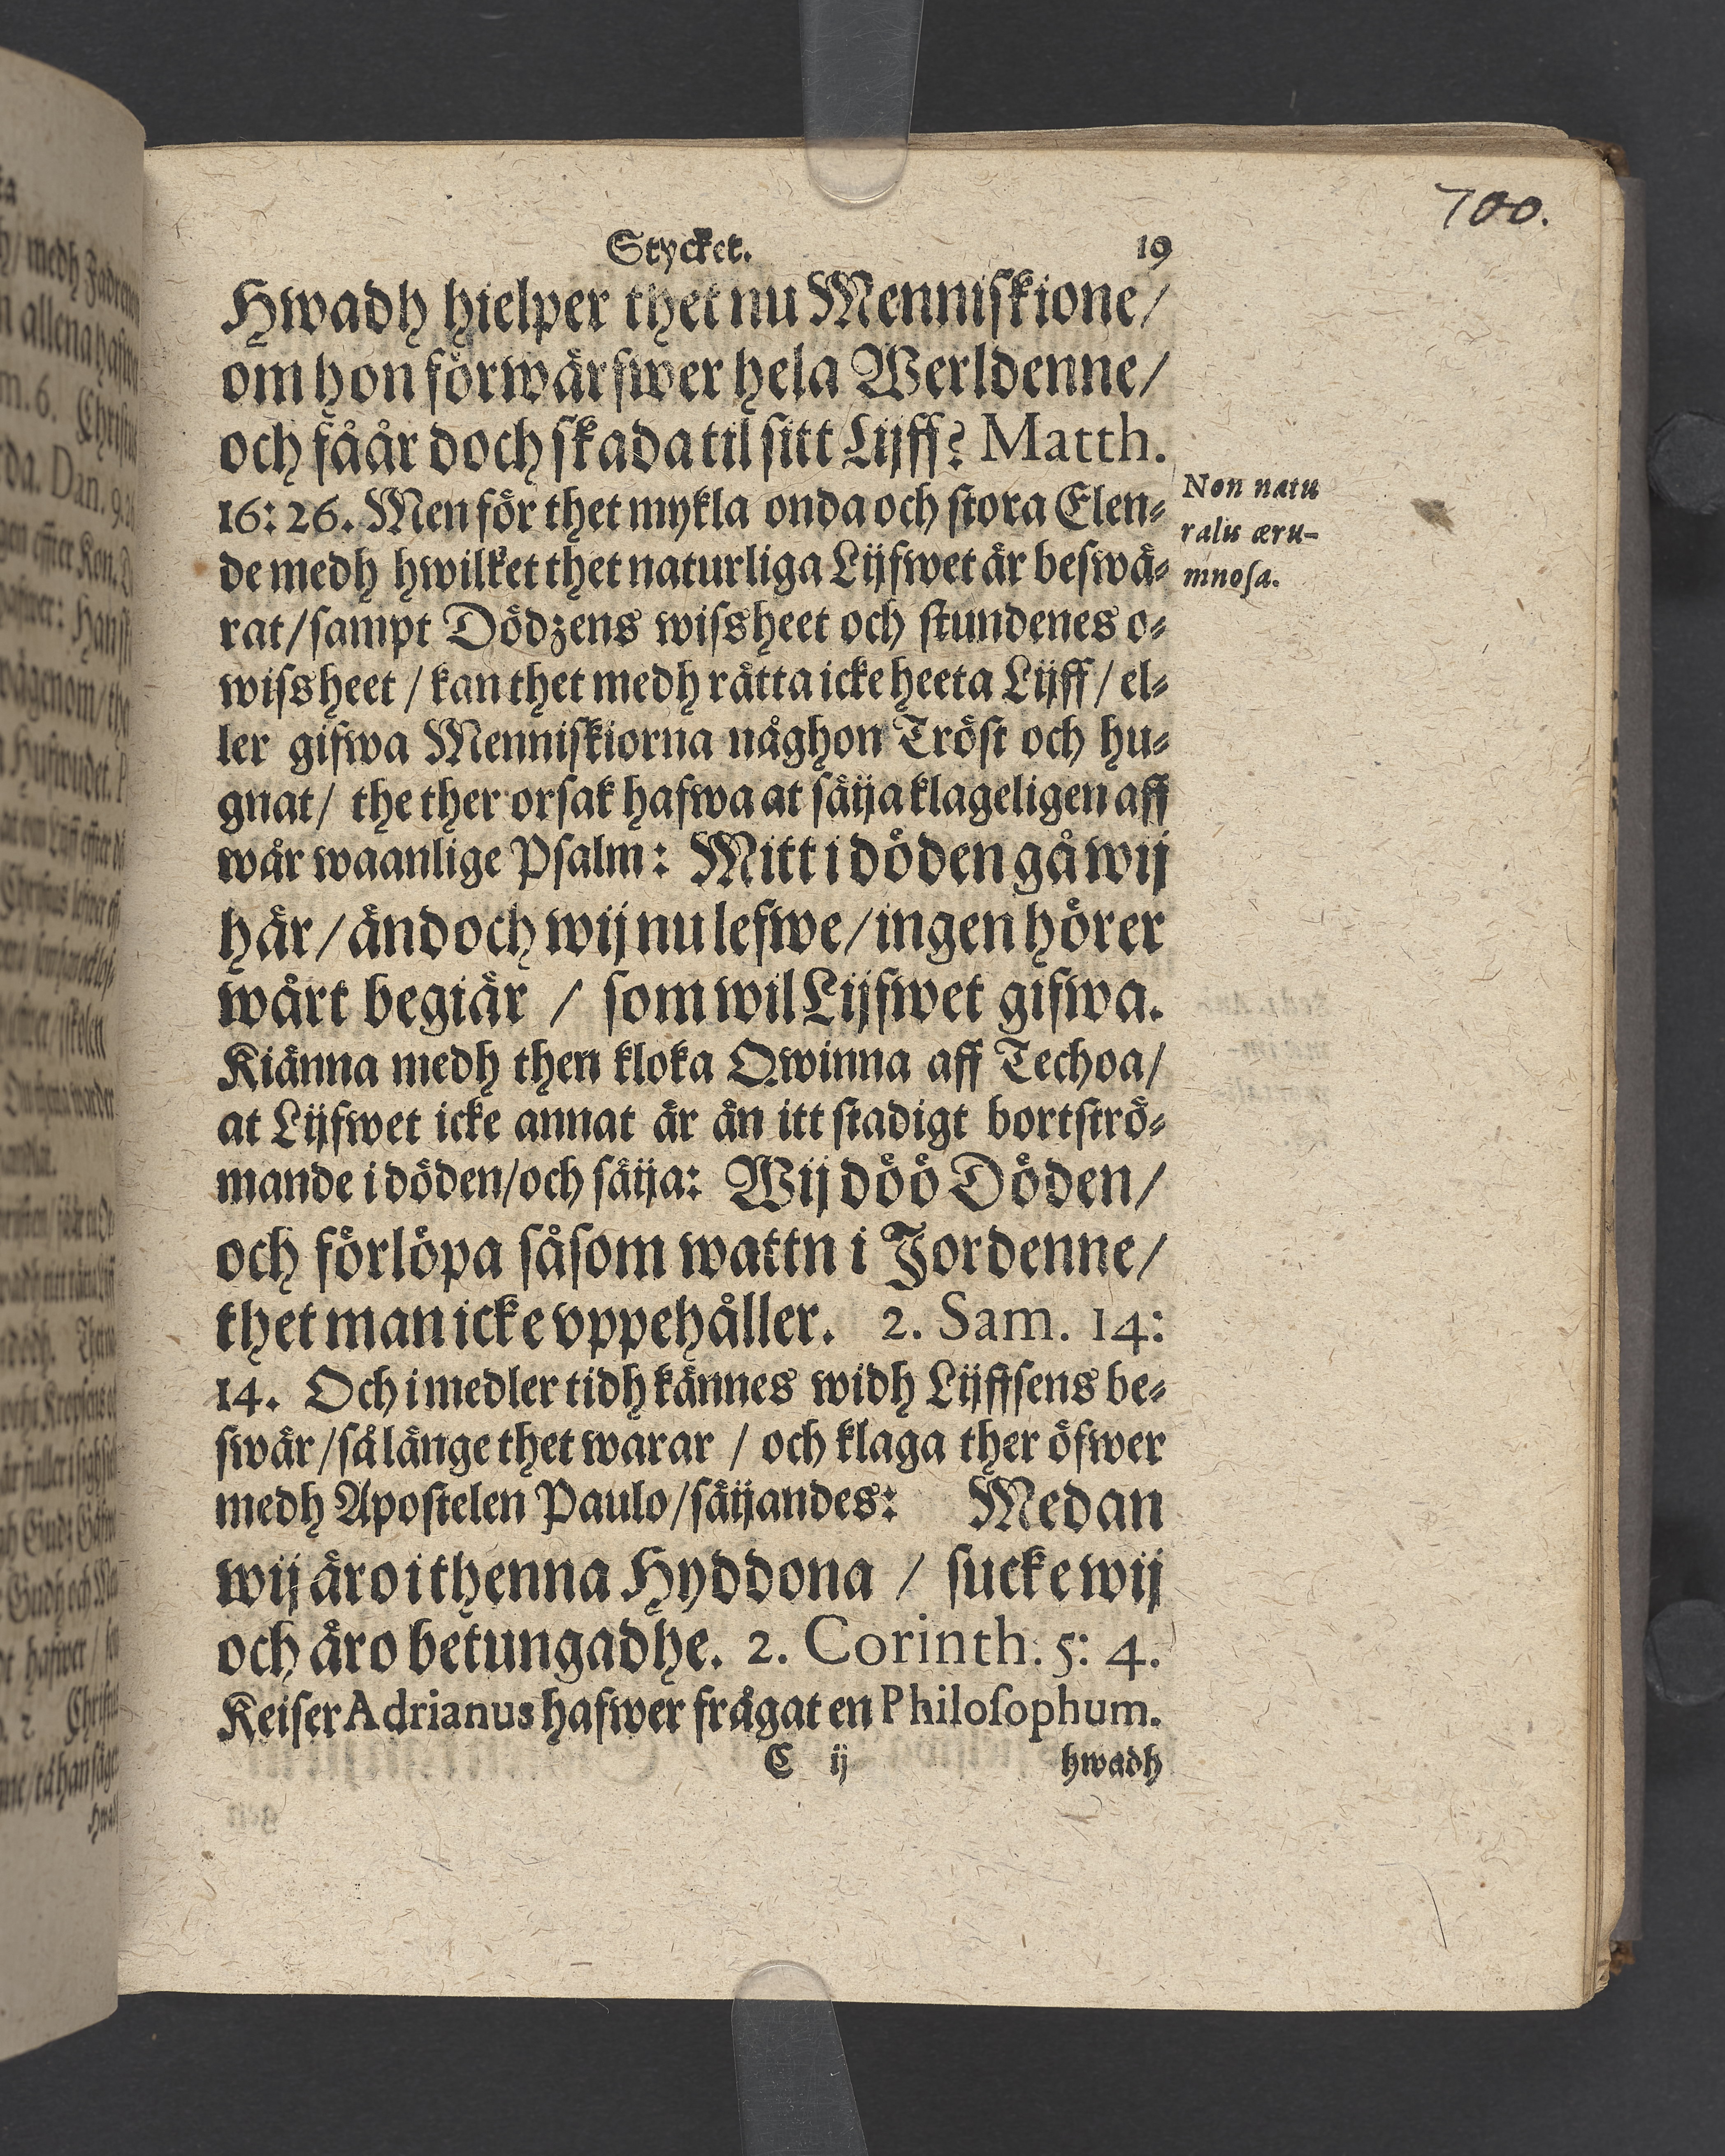 700.
Stycket. 19
Hwadh hielper thet nu Menniskione/
om hon förwärfwer hela Werldenne/
och fåår doch skada til sitt Lijff? Matth.
16: 26. Men för thet mykla onda och stora Elen-
de medh hwilket thet naturliga Lijfwet är beswä-
rat/ sampt Dödzens wissheet och stundenes o-
wissheet / kan thet medh rätta icke heeta Lijff / el-
ler gifwa Menniskiorna någhon Tröst och hu-
gnat/ the ther orsak hafwa at säija klageligen aff
wår waanlige Psalm: Mitt i döden gå wij
här/ ändoch wij nu lefwe/ ingen hörer
wårt begiär / som wil Lijfwet gifwa.
Kiänna medh then kloka Qwinna aff Techoa/
at Lijfwet icke annat är än itt stadigt bortströ-
mande i döden/ och säija: Wij döö Döden/
och förlöpa såsom wattn i Jordenne/
thet man icke vppehåller. 2. Sam. 14:
14. Och i medler tidh kännes widh Lijffsens be-
swär/ så länge thet warar / och klaga ther öfwer
medh Apostelen Paulo/ säijandes: Medan
wij äro i thenna Hyddona / sucke wij
och äro betungadhe. 2. Corinth. 5: 4.
Keiser Adrianus hafwer frågat en Philosophum.
C ij hwadh
Non natu
ralis æru-
mnosa.